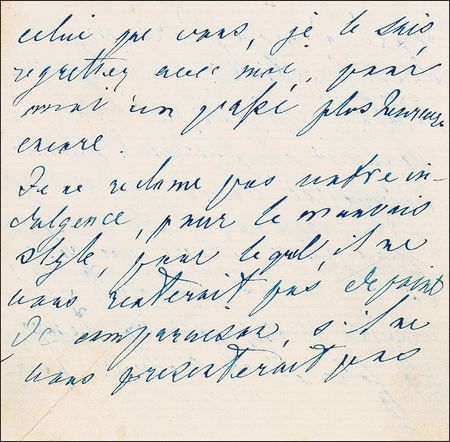 celui que vous, je le sais
regrettez avec moi, pour
moi un passé plus heureux
encore.
Je ne réclame pas votre in-
dulgence, pour le mauvais
style, pour lequel, il ne
vous resterait pas de point
de comparaison, s'il ne
vous présenterait pas